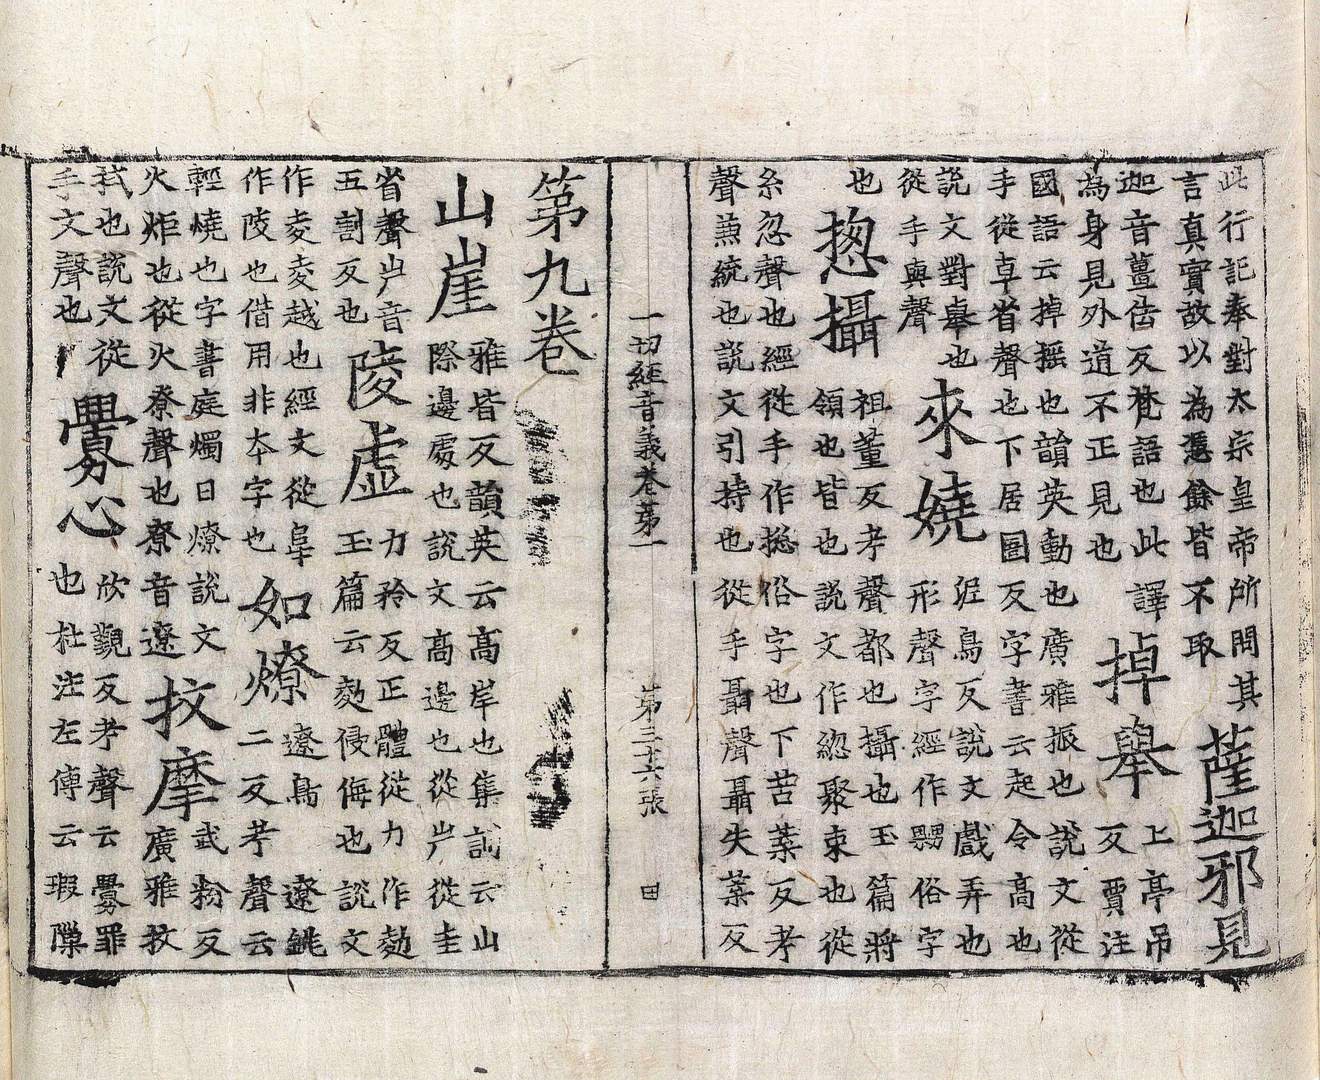 此行記奉對太宗皇帝所問其言真實故以為憑餘皆不取薩迦邪見
迦音薑佉反梵語也此譯為身見外道不正見也掉舉上亭吊反賈注
國語云掉摇也韻英動也廣雅振也說文從手從卓省聲也下居圄反字書云起令高也
說文對舉也從手與聲來嬈泥鳥反說文戲弄也形聲字經作嬲俗字
也揔攝祖董反考聲都也攝也玉篇將領也皆也說文作緫聚束也從
糸忽聲也經從手作揔俗字也下苦葉反考聲兼統也說文引持也從手聶聲聶失葉反
一切經音義卷第一 第三十六張 田
第九卷
山崖雅皆反韻英云高岸也集訓云山際邊處也說文高邊也從屵從圭
省聲屵音五割反也陵虛力矜反正體從力作勊玉篇云勊侵侮也說文
作夌夌越也經文從阜作陵也借用非本字也如燎遼鳥遼銚二反考聲云
輕燒也字書庭燭曰燎說文火炬也從火尞聲也尞音遼抆摩武粉反廣雅抆
拭也說文從手文聲也釁心欣覲反考聲云釁罪也杜注左傳云瑕隟